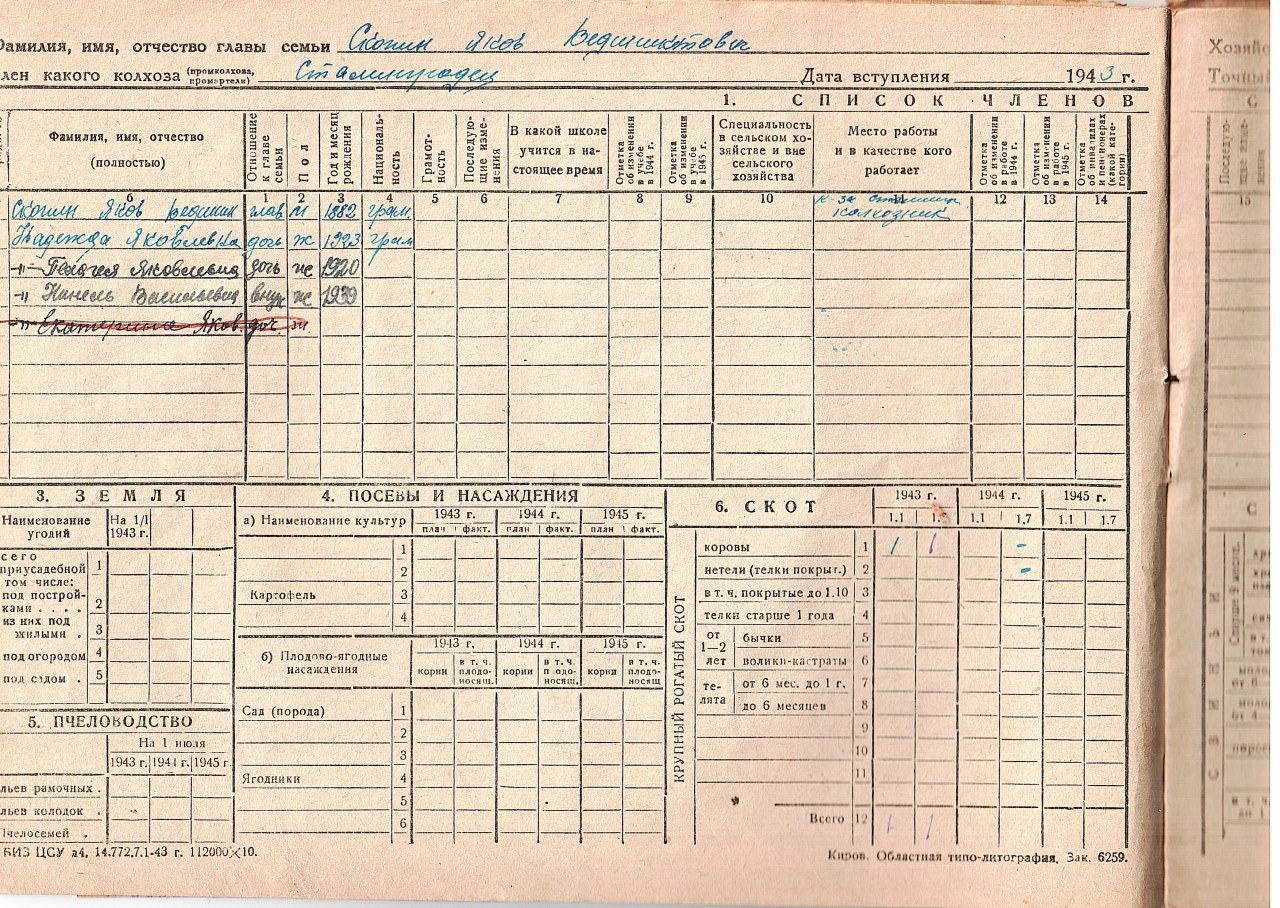 Фамилия, имя, отчество главы семьи Скопин Яков
лен какого колхоза (промколхоза, промартели) Сталинградец Дата вступления 1943 г.
1. СПИСОК ЧЛЕНОВ
Фамилия, имя, отчество (полностью)
Отношение к главе семьи
Пол
Год и месяц рождения
Националь-ность
Грамот-ность
Последую-щие изме-нения
В какой школе учится в на-стоящее время
Отметка об изменении в учебе в 1944 г.
Отметка об изменении в учебе в 1945 г.
Специальность в сельском хо-зяйстве и вне сельского хозяйства
Место работы и в качестве кого работает
Отметка об изменении в работе в 1944 г.
Отметка об изменении в работе в 1945 г.
Отметка об инвалидах и пенсионерах (какой кате-гории)
б 1 2 3 4 5 6 7 8 9 10 11 12 13 14
Скопин Яков глав м 1882 грам колхозник
Надежда Яковлевна дочь ж 1923 грам
-"- Яковлевна дочь ж 1920
-"- Нинель Васильевна внук ж 1939
-"- Екатерина Яков. доч. ж
3. ЗЕМЛЯ
Наименование угодий
На 1/I 1943 г.
сего
приусадебной 1
том числе:
под построй-
ками . . . . 2
из них под
жилыми . 3
под огородом 4
под садом . 5
5. ПЧЕЛОВОДСТВО
На 1 июля
1943 г. 1944 г. 1945 г.
льев рамочных .
льев колодок .
Пчелосемей .
4. ПОСЕВЫ И НАСАЖДЕНИЯ
а) Наименование культур 1943 г. 1944 г. 1945 г.
план факт. план факт. план факт.
1
2
Картофель 3
4
б) Плодово-ягодные насаждения 1943 г. 1944 г. 1945 г.
корни в т. ч. плодо-носящ. корни в т. ч. плодо-носящ. корни в т. ч. плодо-носящ
Сад (порода) 1
2
3
Ягодники 4
5
6
6. СКОТ 1943 г. 1944 г. 1945 г.
1.1 1.7 1.1 1.7 1.1 1.7
КРУПНЫЙ РОГАТЫЙ СКОТ
коровы 1 1 1 -
нетели (телки покрыт.) 2 -
в т. ч. покрытые до 1.10 3
телки старше 1 года 4
от 1—2 лет бычки 5
волики-кастраты 6
те-лята от 6 мес. до 1 г. 7
до 6 месяцев 8
9
10
11
Всего 12 1 1
БИЗ ЦСУ а4, 14.772,7.1-43 г. 112000×10.
Киров. Областная типо-литография. Зак. 6259.
Хозяйс
Точный
С
15
С